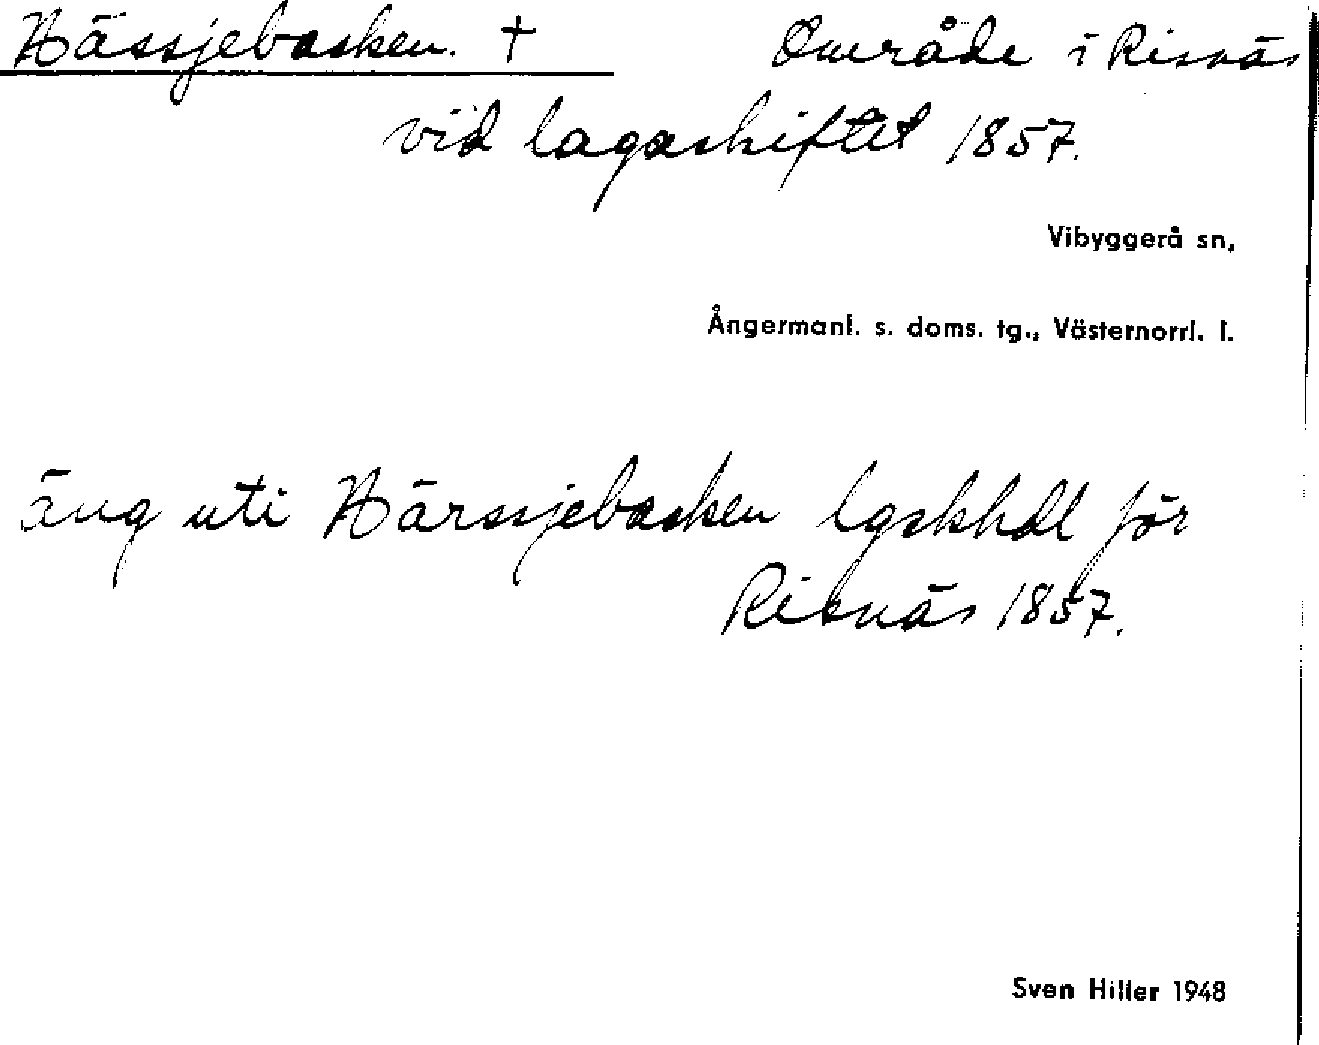 Hässjebacken. † Område i Risnäs
vid lagaskiftet 1857.
Vibyggerå sn,
Ångermanl. s. doms. tg., Västernorrl. l.
äng uti Härssjebacken lgskhdl för
Risnäs 1857.
Sven Hiller 1948